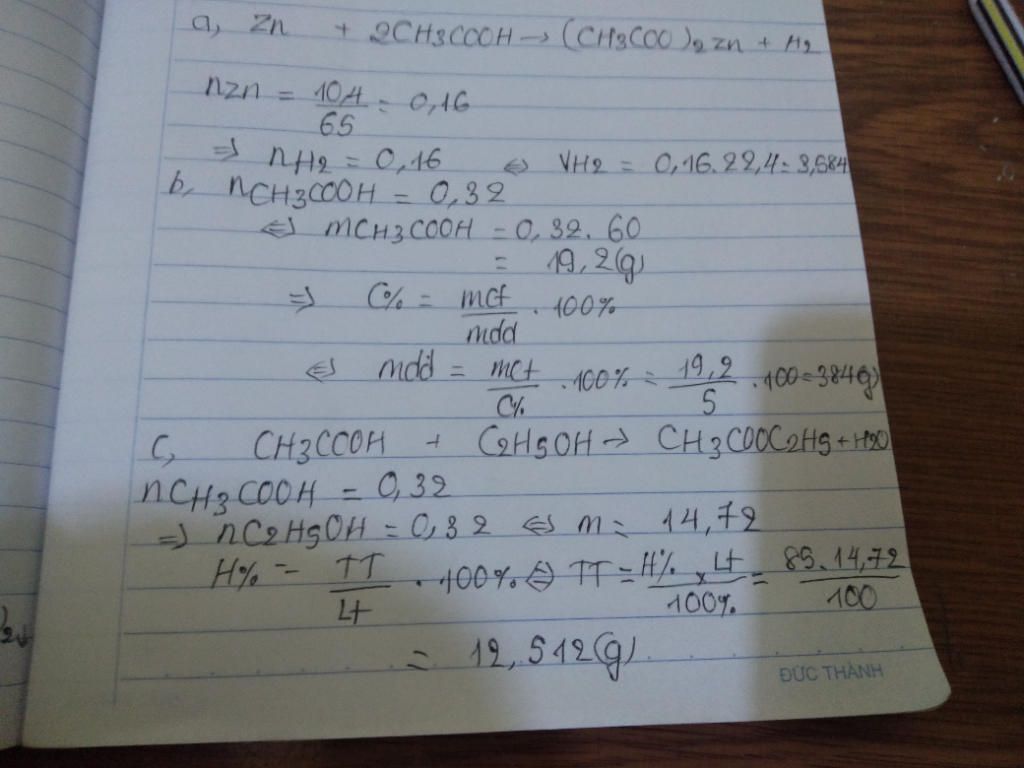 a, Zn + 2CH3COOH → (CH3COO)2 Zn + H2
nZn = 10,4/65 = 0,16
⇒ nH2 = 0,16 ⇔ VH2 = 0,16.22,4 = 3,584
b, nCH3COOH = 0,32
⇔ mCH3COOH = 0,32.60
= 19,2(g)
⇒ C% = mct/mdd . 100%
⇔ mdd = mct/C% .100% = 19,2/5 .100 = 384(g)
c, CH3COOH + C2H5OH → CH3COOC2H5 + H2O
nCH3COOH = 0,32
⇒ nC2H5OH = 0,32 ⇔ m = 14,72
H% = TT/Lt . 100% ⇔ TT = H% x Lt/100% = 85.14,72/100
= 12,512(g)
ĐỨC THÀNH